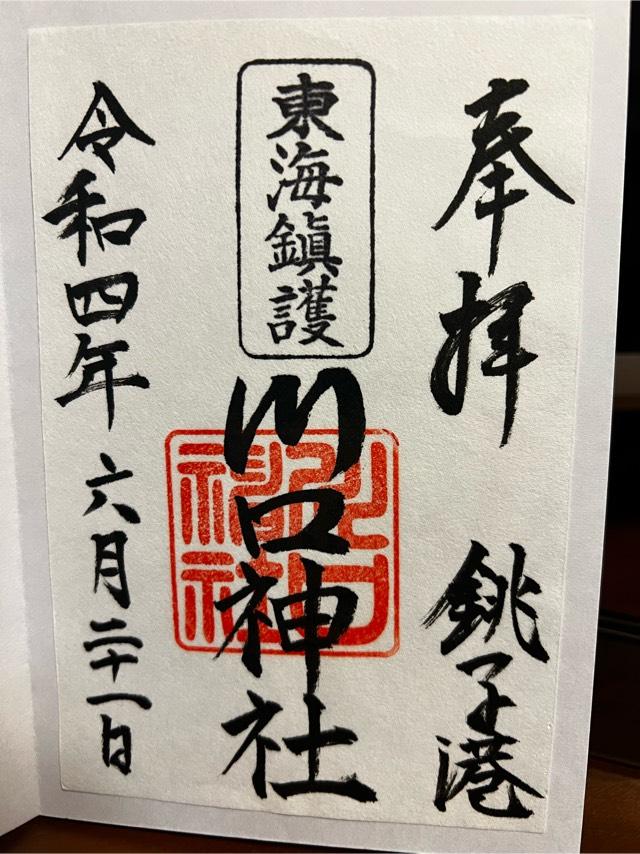 奉拝
銚子港
東海鎮護
川口神社
川口神社
令和四年六月二十一日